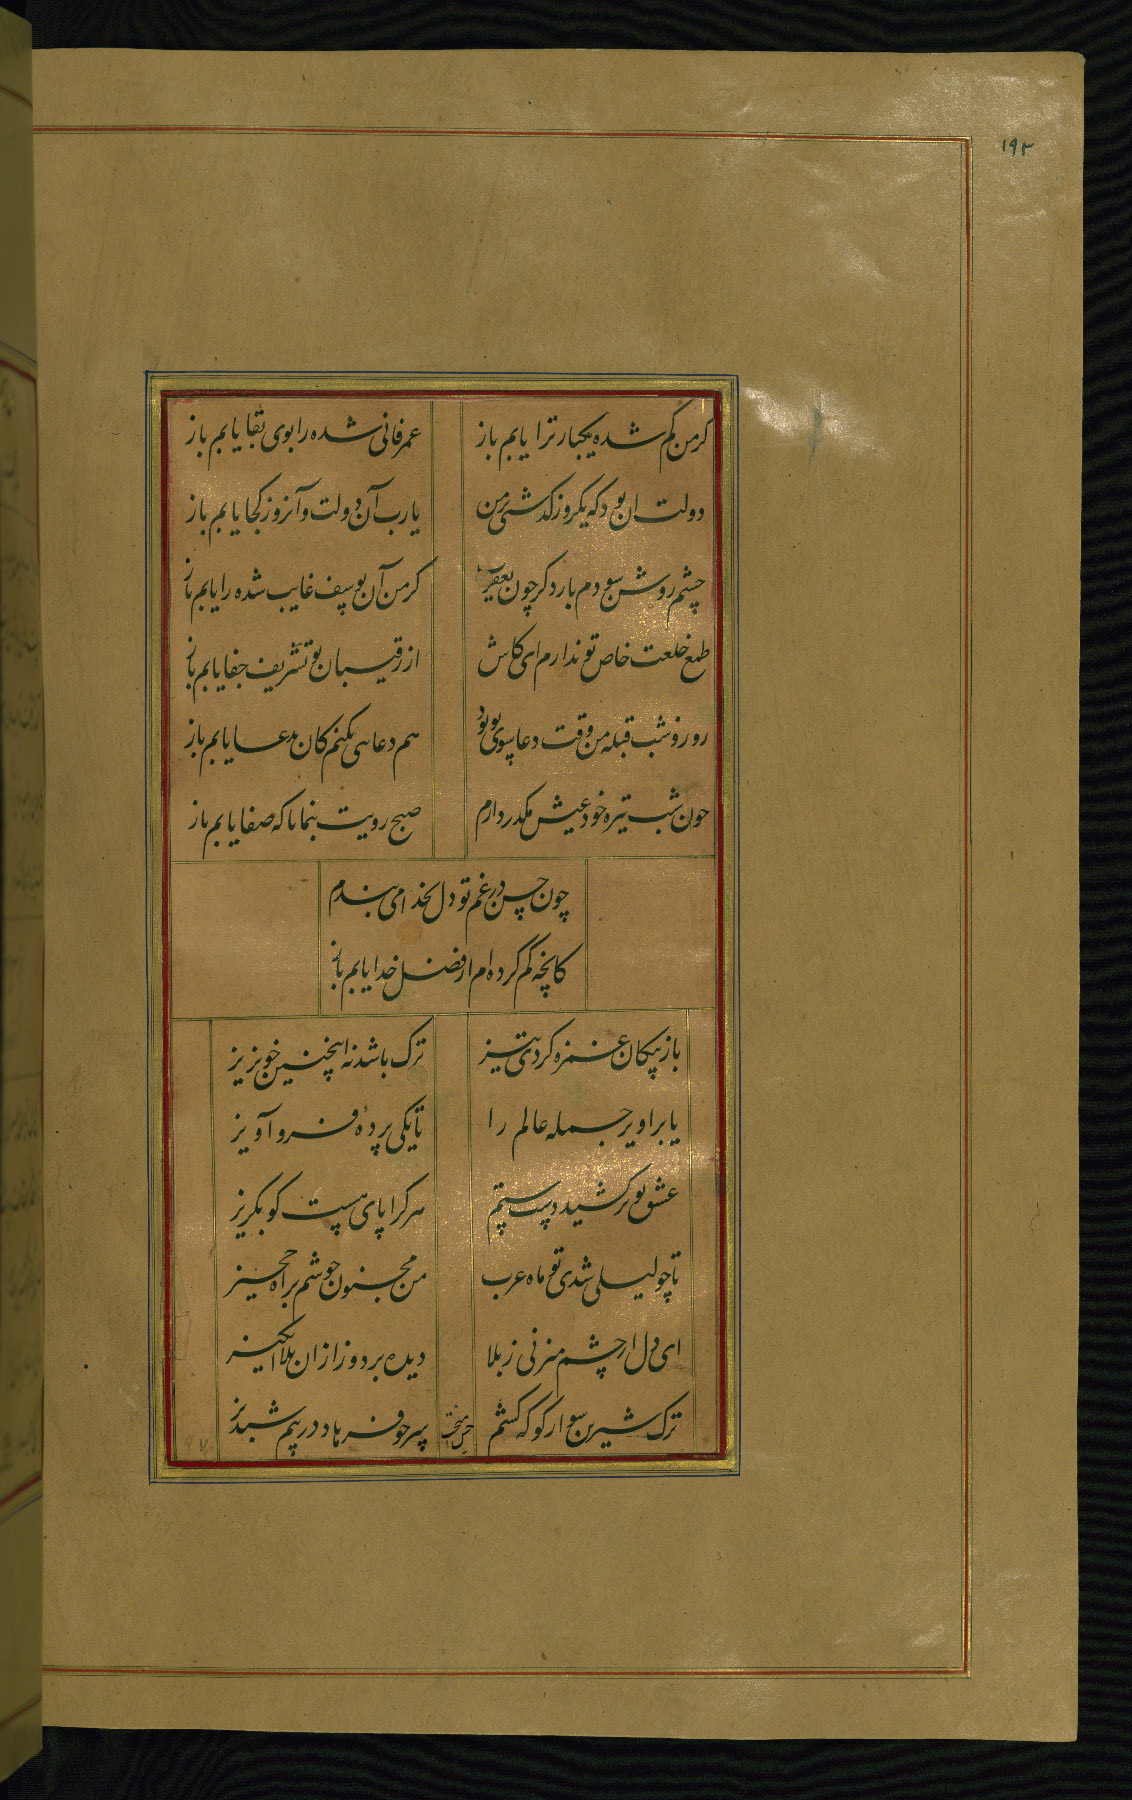 ۱۹۳
کر من کم شده یکبار ترا یابم باز
عمر فانی شده را بوی بقا یابم باز
دولت ان بود که یکروز کذشتی بر من
یارب آن دولت و آنروز کجا یابم باز
چشم روشن سودم بار دکر چون یعقوب
کر من آن یوسف غایب شده را یابم باز
طمع خلعت خاص تو ندارم ای کاش
از رقیبان تو تشریف جفا یابم باز
روز و شب قبله من وقت دعا سوی تو بود
هم دعایی بکنم کان مدعا یابم باز
چون شب تیره خود عیش مکدر دارم
صبح رویت بنما تا که صفا یابم باز
چون حسن در غم تو دل بخدا می بندم
کانچه کم کرده ام از فضل خدا یابم باز
باز پیکان غمزه کردی تیز
ترک باشد نه اینچنین خونریز
یا براویز جمله عالم را
تا یکی پرده فرو آویز
عشق تو برکشید دست ستم
هر کرا پای هست کو بکریز
تا چو لیلی شدی تو ماه عرب
من مجنون خوشم براه حجیز
ای دل ار چشم میزنی ز بلا
دیده بردوز ازان بلا انکیز
ترک شیرین سوار کو که کشتم
پسر چو فرهاد در پیم شبدیز